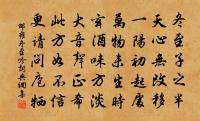 冬至子之半
天心無改移
一陽初起處
萬物未生時
玄酒味方淡
大音聲正希
此如不信
更請問庖犧
邵雍冬至吟